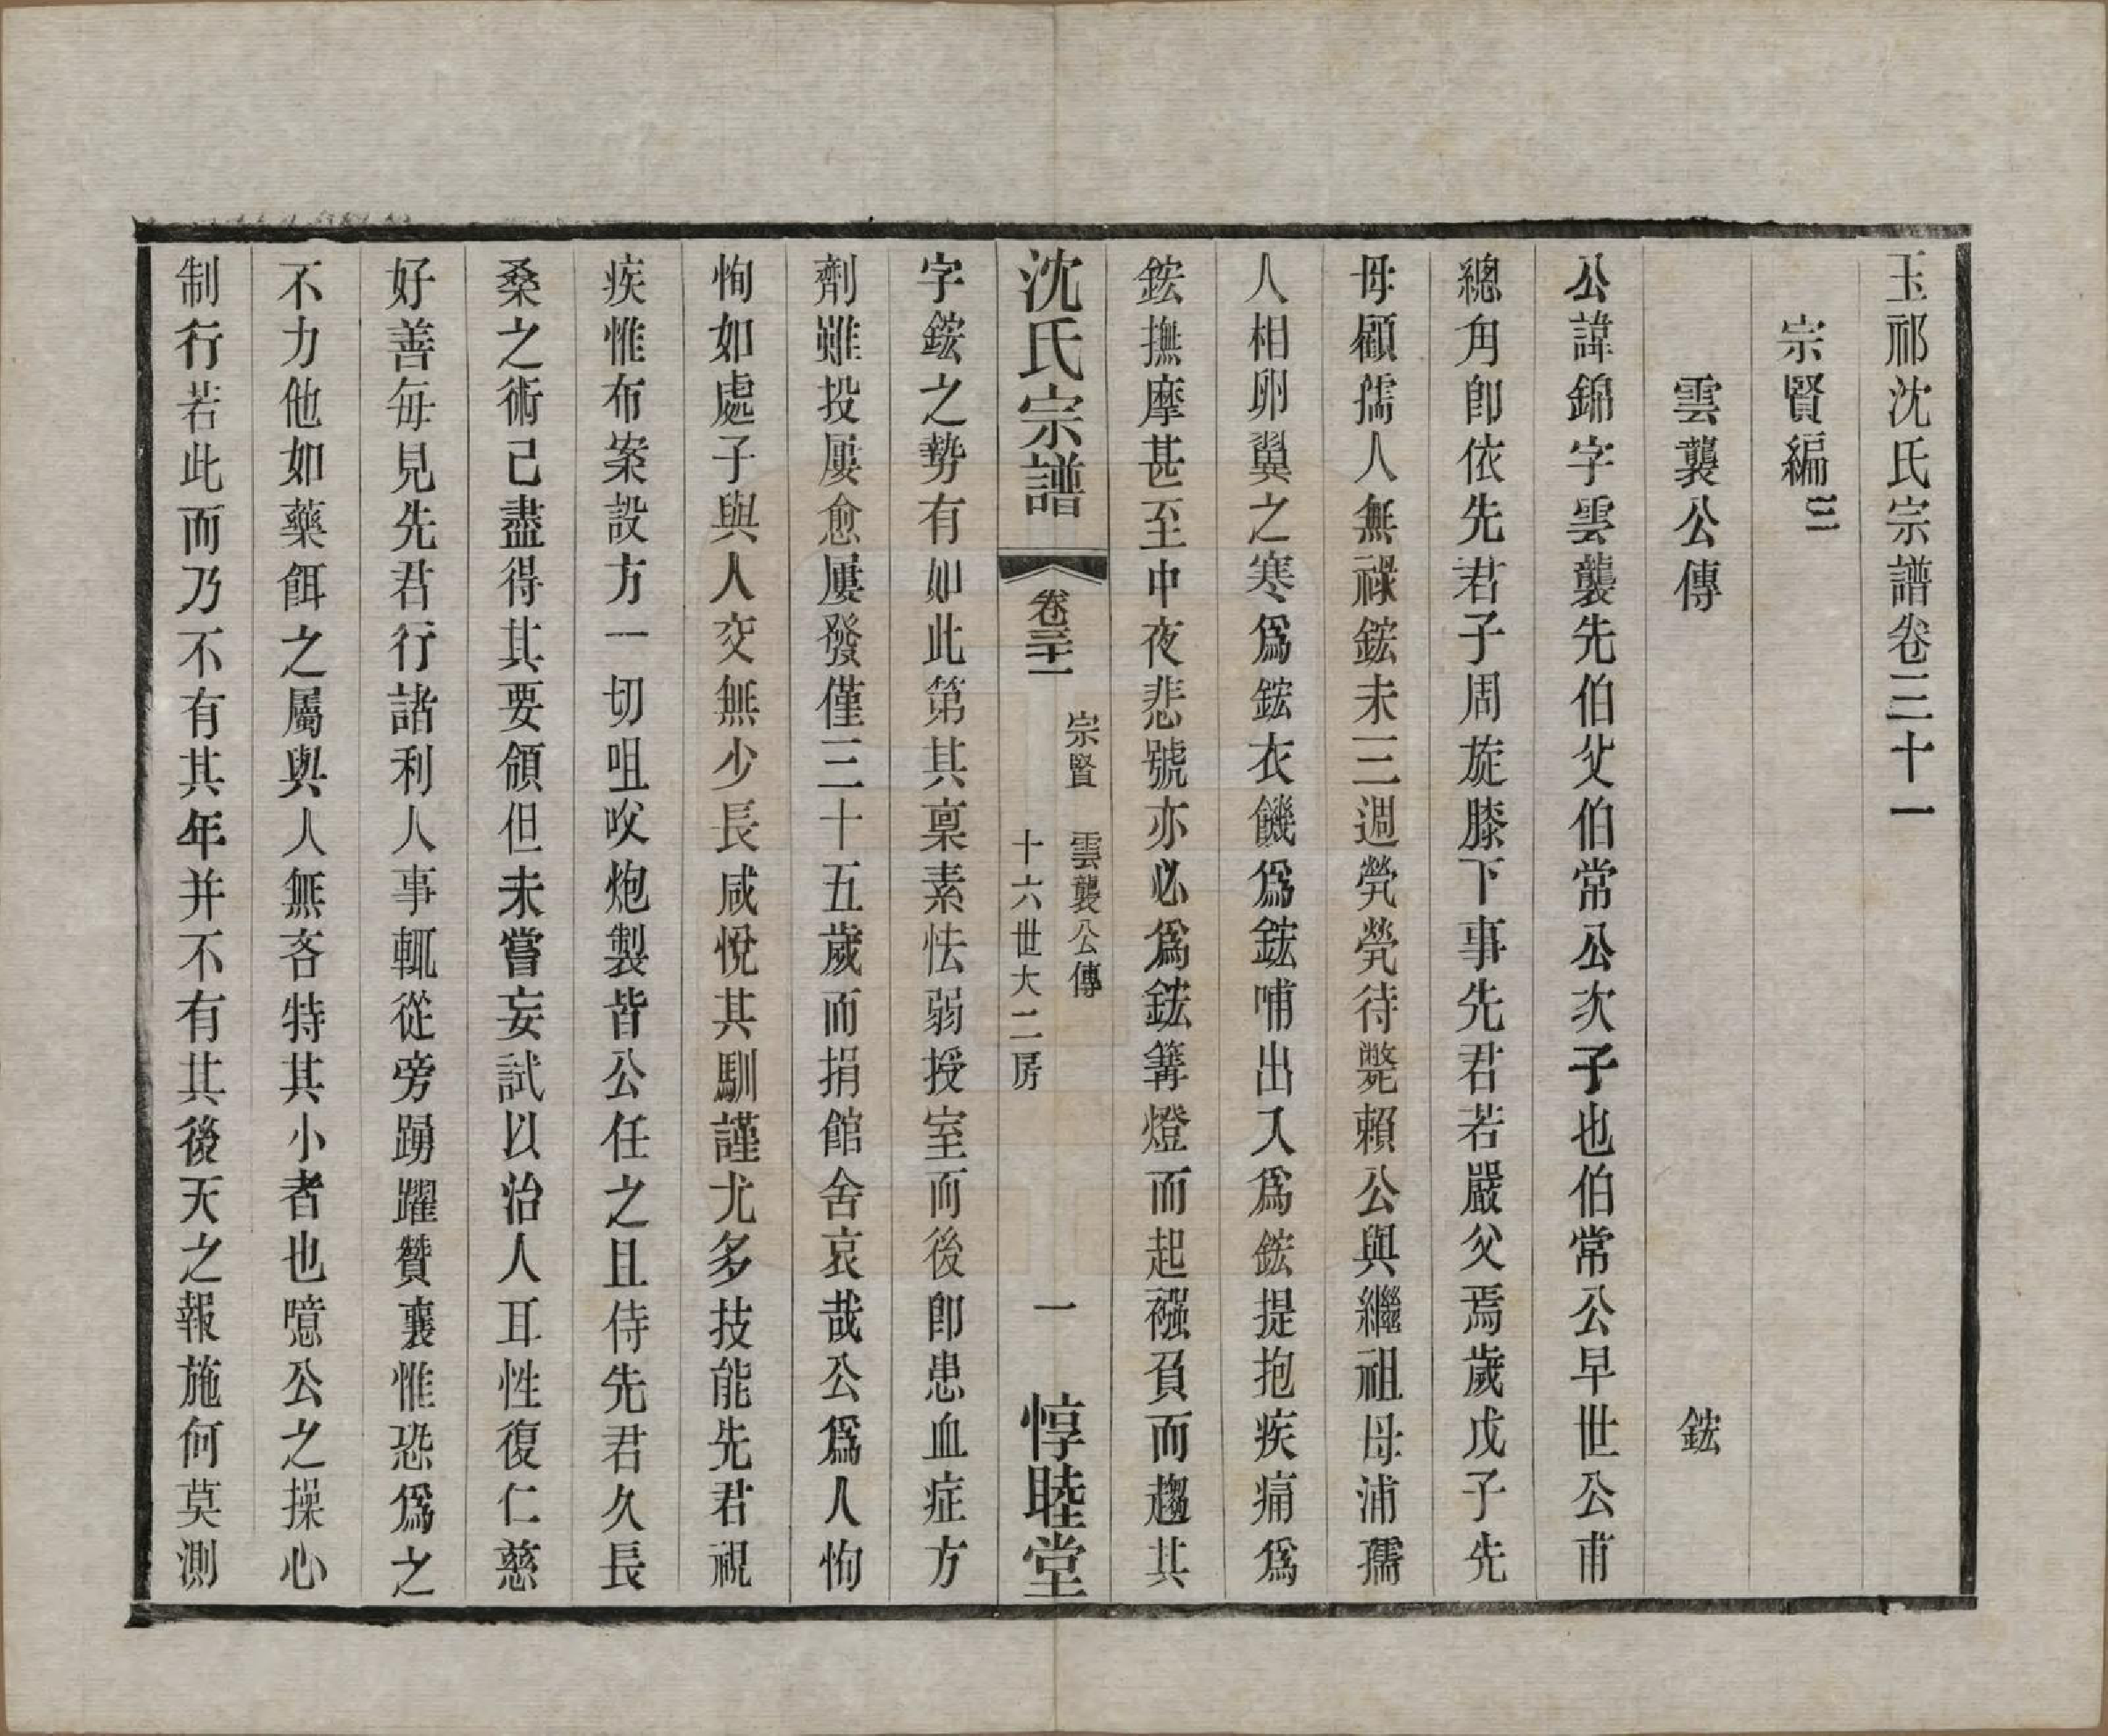 玉祁沈氏宗譜卷三十一
宗賢編三
雲襲公傳　鋐
公諱錦字雲襲先伯父伯常公次子也伯常公早世公甫
總角卽依先君子周旋膝下事先君若嚴父焉歲戊子先
母顧孺人無祿鋐未三週煢煢待斃賴公與繼祖母浦孺
人相卵翼之寒爲鋐衣饑爲鋐哺出入爲鋐提抱疾痛爲
鋐撫摩甚至中夜悲號亦必爲鋐篝燈而起襁負而趨其
沈氏宗譜
卷三十一
宗賢　雲襲公傳
十六世大二房
一
惇睦堂
字鋐之勢有如此第其稟素怯弱授室而後卽患血症方
劑雖投屢愈屢發僅三十五歲而捐館舍哀哉公爲人恂
恂如處子與人交無少長咸悅其馴謹尤多技能先君視
疾惟布案設方一切咀㕮炮製皆公任之且侍先君久長
桑之術已盡得其要領但未嘗妄試以治人耳性復仁慈
好善每見先君行諸利人事輒從旁踴躍贊襄惟恐爲之
不力他如藥餌之屬與人無吝特其小者也噫公之操心
制行若此而乃不有其年并不有其後天之報施何莫測